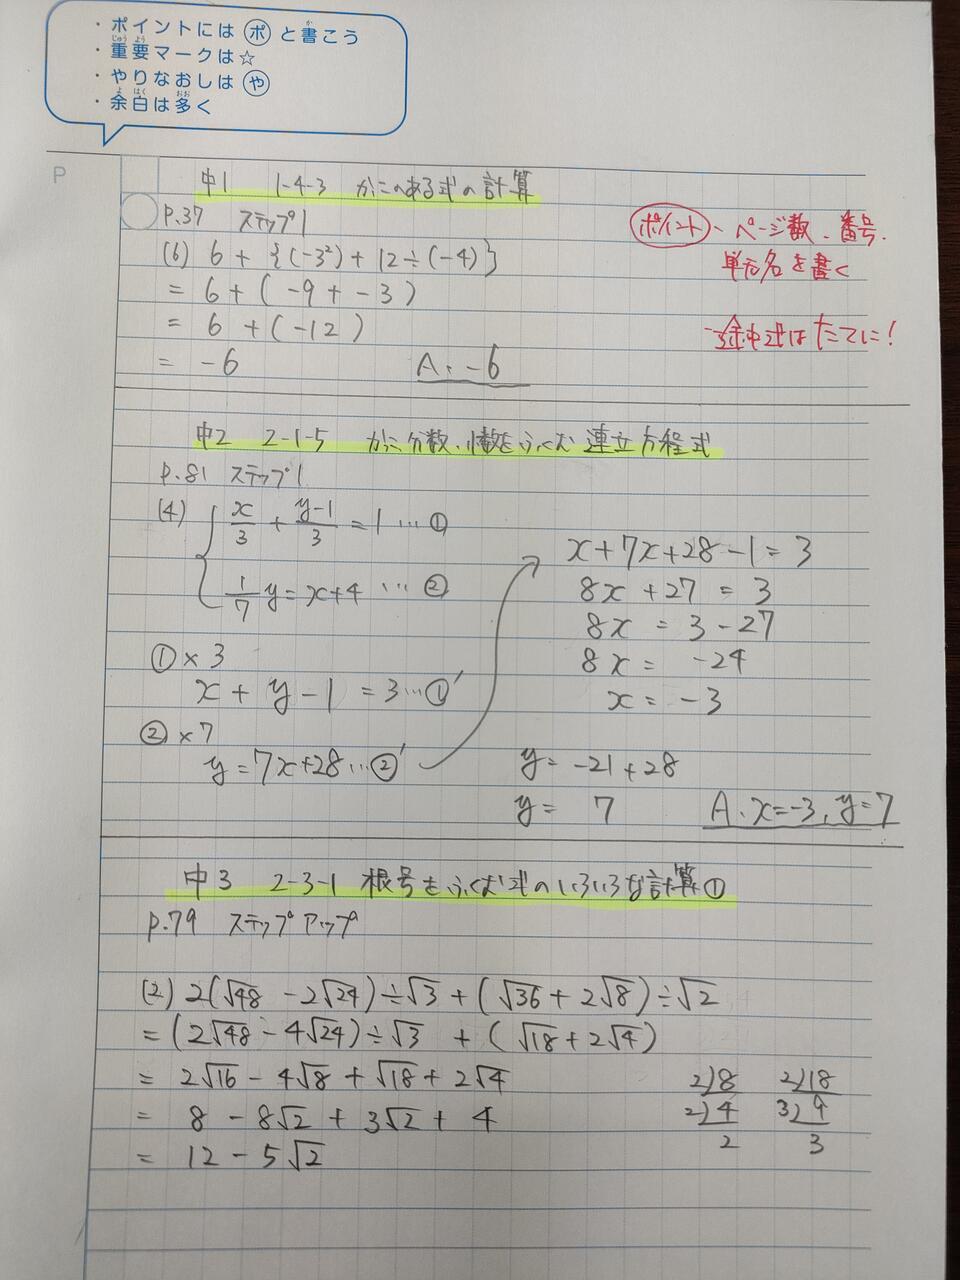 ・ポイントには㋭と書こう
・重要マークは☆
・やりなおしは㋳
・余白は多く
P
中1 1-4-3 かっこのある式の計算
P.37 ステップ1
ポイント - ページ数、番号、
単元名を書く
(6) 6 + {(-3²) + 12 ÷ (-4)}
= 6 + ( -9 + -3 )
= 6 + (-12)
- 途中式はたてに!
= -6 A. -6
中2 2-1-5 かっこ、分数、小数をふくむ連立方程式
P.81 ステップ1
(4) { x/3 + (y-1)/3 = 1 … ①
1/7 y = x+4 … ②
① × 3
x + y - 1 = 3 … ①'
② × 7
y = 7x+28 … ②'
x + 7x + 28 - 1 = 3
8x + 27 = 3
8x = 3 - 27
8x = -24
x = -3
y = -21 + 28
y = 7 A. x=-3, y=7
中3 2-3-1 根号をふくむ式のいろいろな計算①
P.79 ステップアップ
(2) 2(√48 - 2√24) ÷ √3 + (√36 + 2√8) ÷ √2
= (2√48 - 4√24) ÷ √3 + (√18 + 2√4)
= 2√16 - 4√8 + √18 + 2√4
= 8 - 8√2 + 3√2 + 4
= 12 - 5√2
2)8 2)18
2)4 3)9
2 3